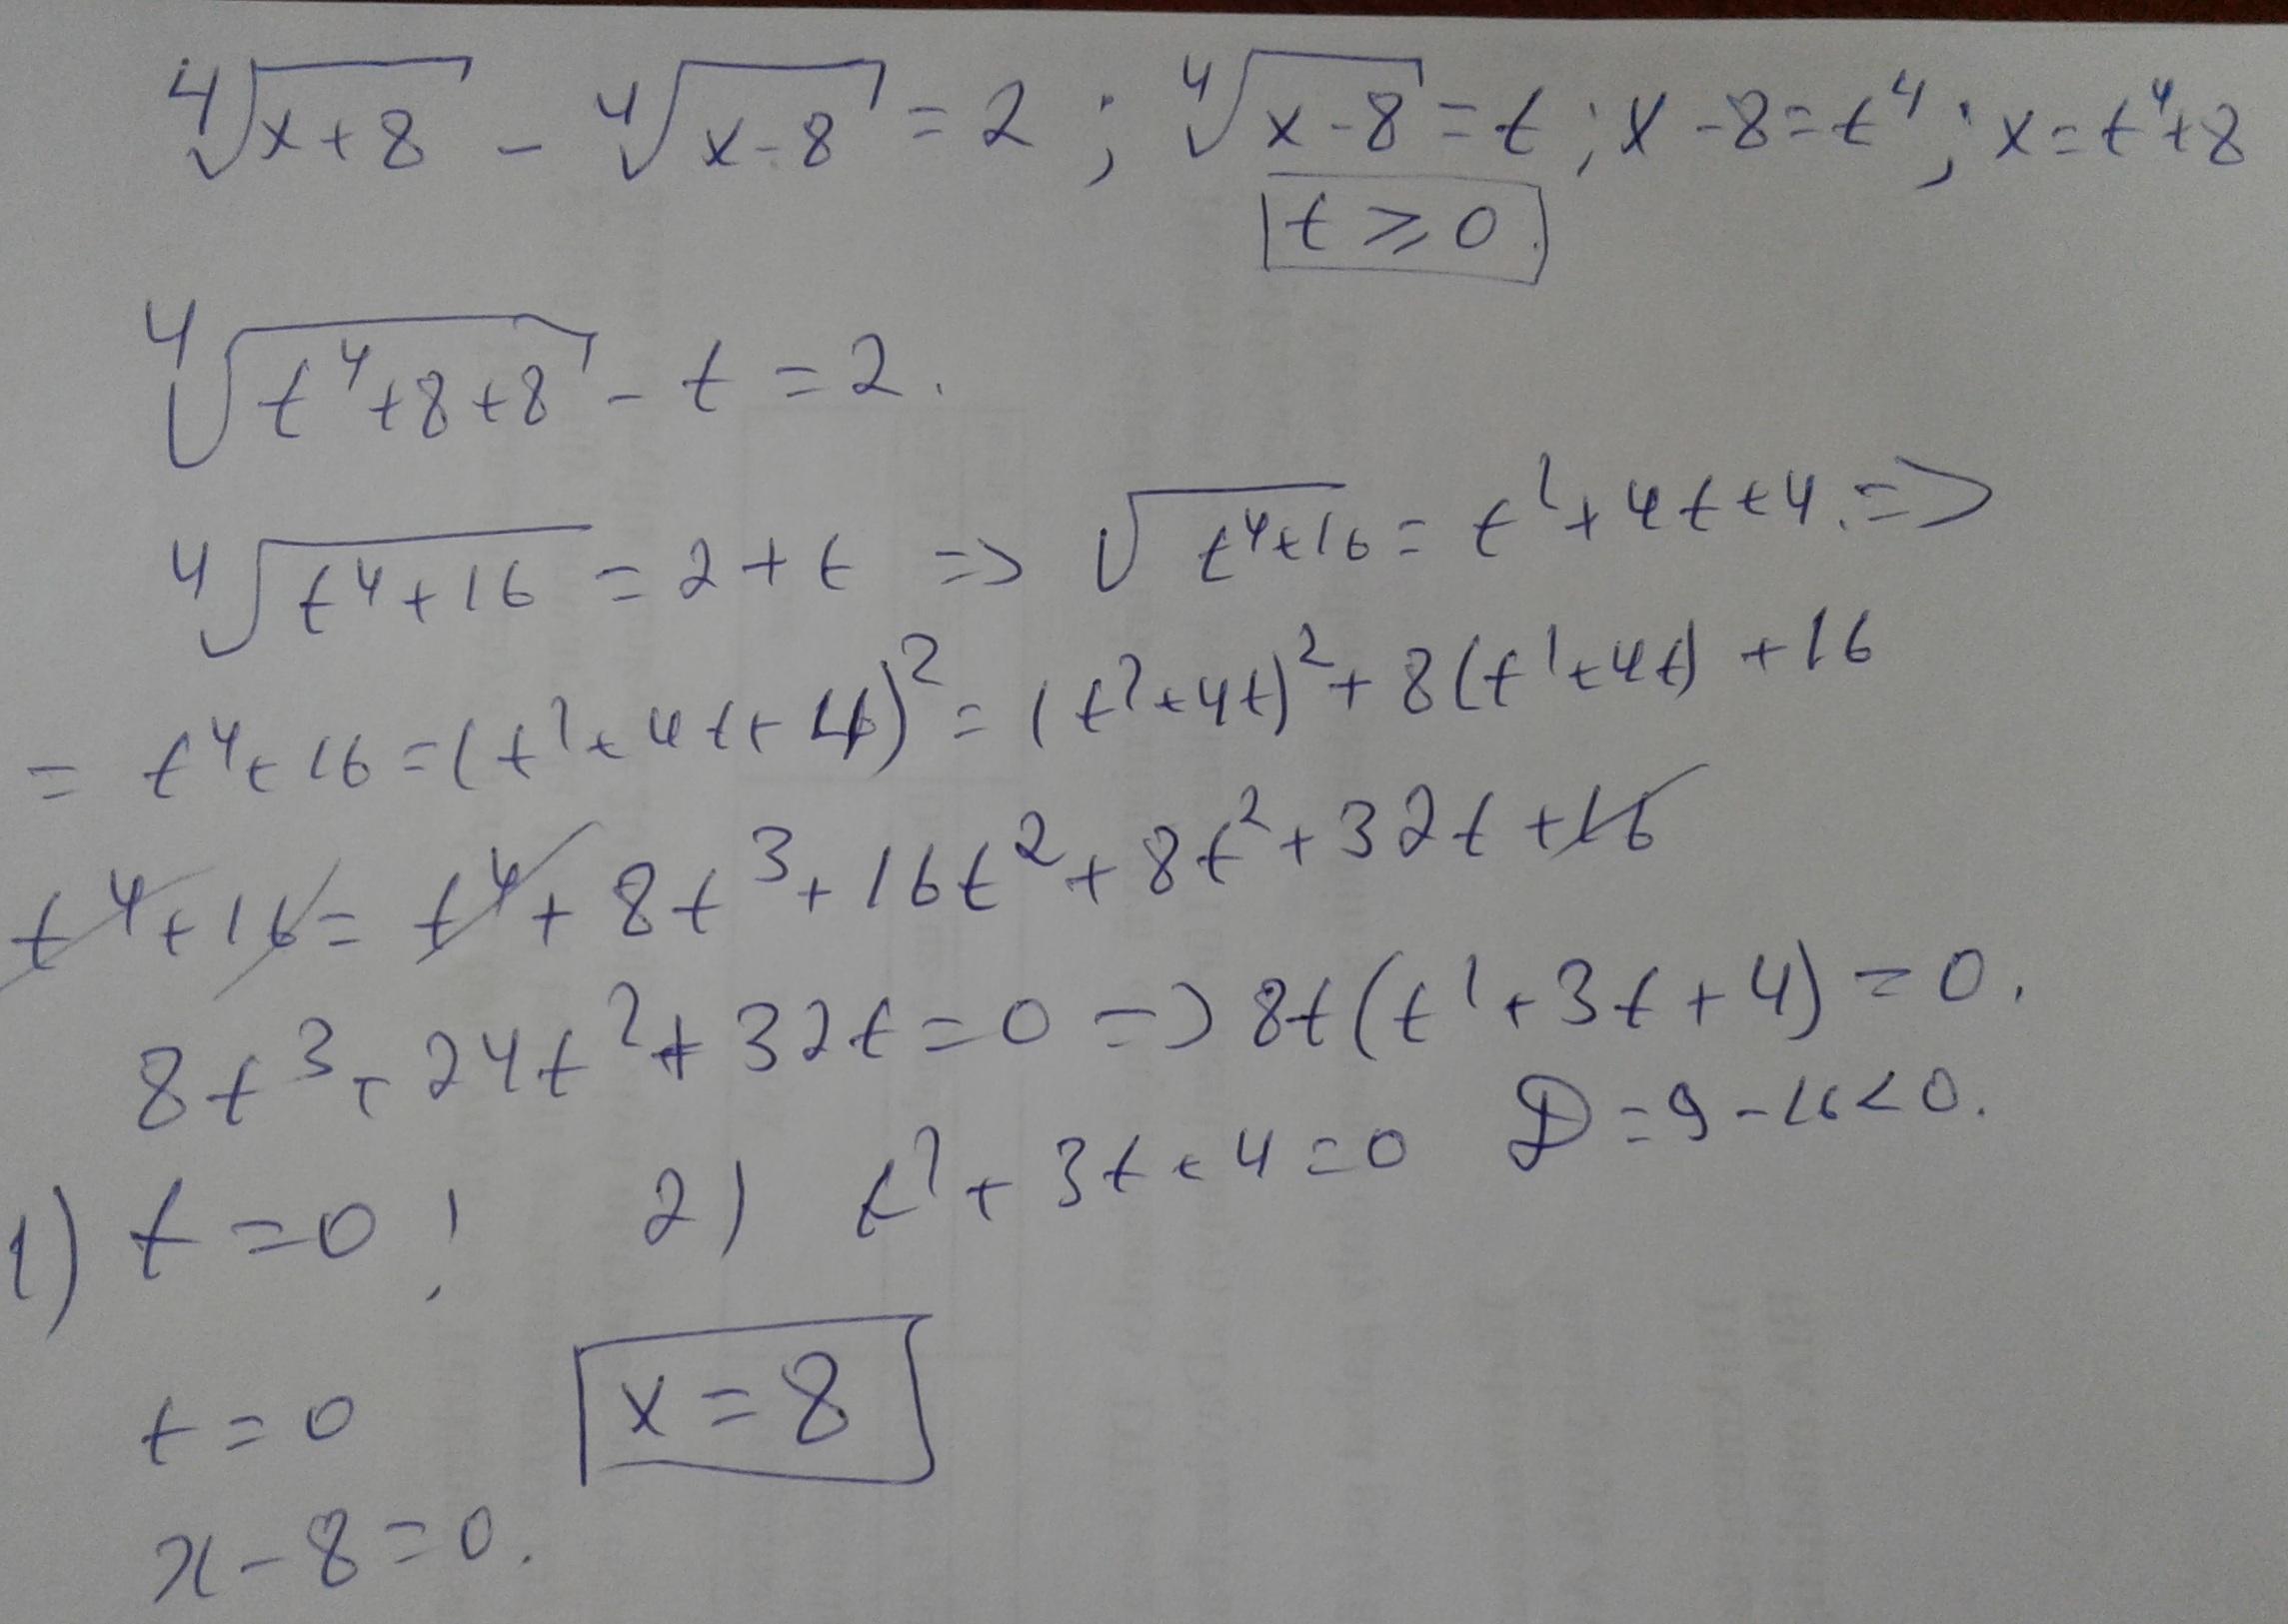 ⁴√(x+8) - ⁴√(x-8) = 2 ; ⁴√(x-8) = t ; x-8 = t⁴ ; x = t⁴+8
t ≥ 0.
⁴√(t⁴+8+8) - t = 2.
⁴√(t⁴+16) = 2+t => √(t⁴+16) = t²+4t+4. =>
= t⁴+16 = (t²+4t+4)² = (t²+4t)² + 8(t²+4t) + 16
t⁴+16 = t⁴ + 8t³ + 16t² + 8t² + 32t + 16
8t³ + 24t² + 32t = 0 => 8t(t²+3t+4) = 0.
1) t = 0 ; 2) t² + 3t + 4 = 0 D = 9 - 16 < 0.
t = 0 x = 8
x - 8 = 0.